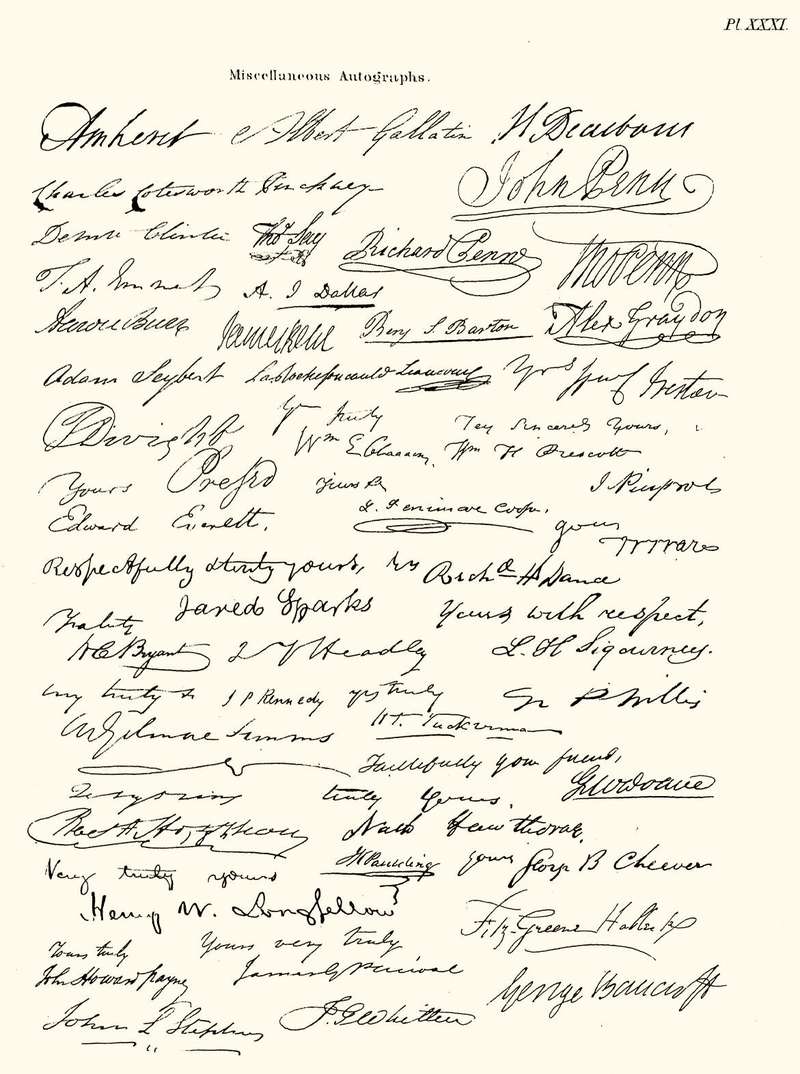 Pl XXXI.
Miscellaneous Autographs.
Amherst Albert Gallatin H Dearborn
Charles Cotesworth Pinckney John Penn
Thos. Say Richard Penn Tho Penn
T. A. Emmet A. J Dallas
Aaron Burr James Kent Benj S. Barton Alex Graydon
Adam Seybert La Rochefoucauld Liancourt Yrs
T Dwight truly sincerely Yours,
Wm E Channing Wm H Prescott
Yours Presto Yours
Edward Everett. J. Fenimore Cooper. yours
W Ware
Respectfully & truly yours, Richd H Dana
Jared Sparks Yours with respect,
W C Bryant J T Headley L. H Sigourney.
truly J P Kennedy yrs truly N P Willis
W Gilmore Simms H. T. Tuckerman
Faithfully your friend,
truly Yours, G W Doane
Nath Hawthorne
Very truly yours J K Paulding yours George B Cheever
Henry W. Longfellow
Fitz-Greene Halleck
Yours truly Yours very truly
John Howard Payne James G Percival
George Bancroft
John L Stephens J. G Whittier